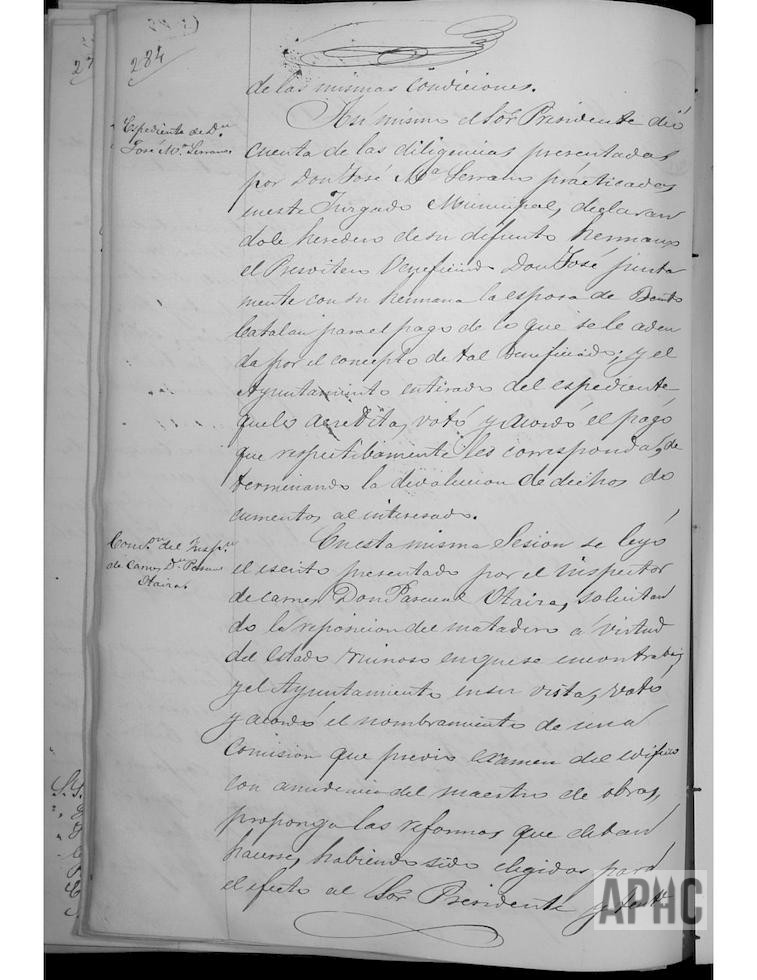 284
de las mismas condiciones.
Expediente de Dn
José Ma Serrano.
Asi mismo el Sor Presidente dió
cuenta de las diligencias presentadas
por Don José Ma Serrano practicadas
en este Juzgado Municipal, declaran
dole heredero de su difunto hermano
el Presvitero Venefiiado Don José junta
mente con su hermana la esposa de Benito
Catalan para el pago de lo que se le aden
da por el concepto de tal benefiiado; y el
Ayuntamiento entirado del espediente
que lo acredita, votó y acordó el pago
que respectibamente les corresponda, de
terminando la devolucion de dichos do
cumentos al interesado.
Comon del Inspr
de Carnes Dn
Otaira.
En esta misma Sesion se leyó
el escrito presentado por el inspector
de carnes Don Pascual Otaira, solicitan
do la reposicion del matadero á virtud
del estado ruinoso en que se encontraba,
y el Ayuntamiento en su vista, votó
y acordó el nombramiento de una
Comision que previo examen del edificio
con asistencia del maestro de obras,
proponga las reformas que deban
hacerse, habiendo sido elegidos para
el efecto al Sor Presidente y
APHC